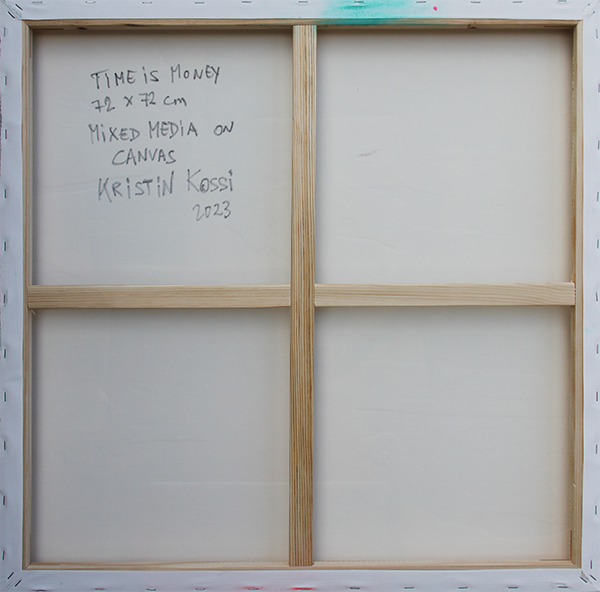 TIME iS MONEY
72 x 72 cm
MiXED MEDIA ON
CANVAS
KRiSTiN KOSSi
2023